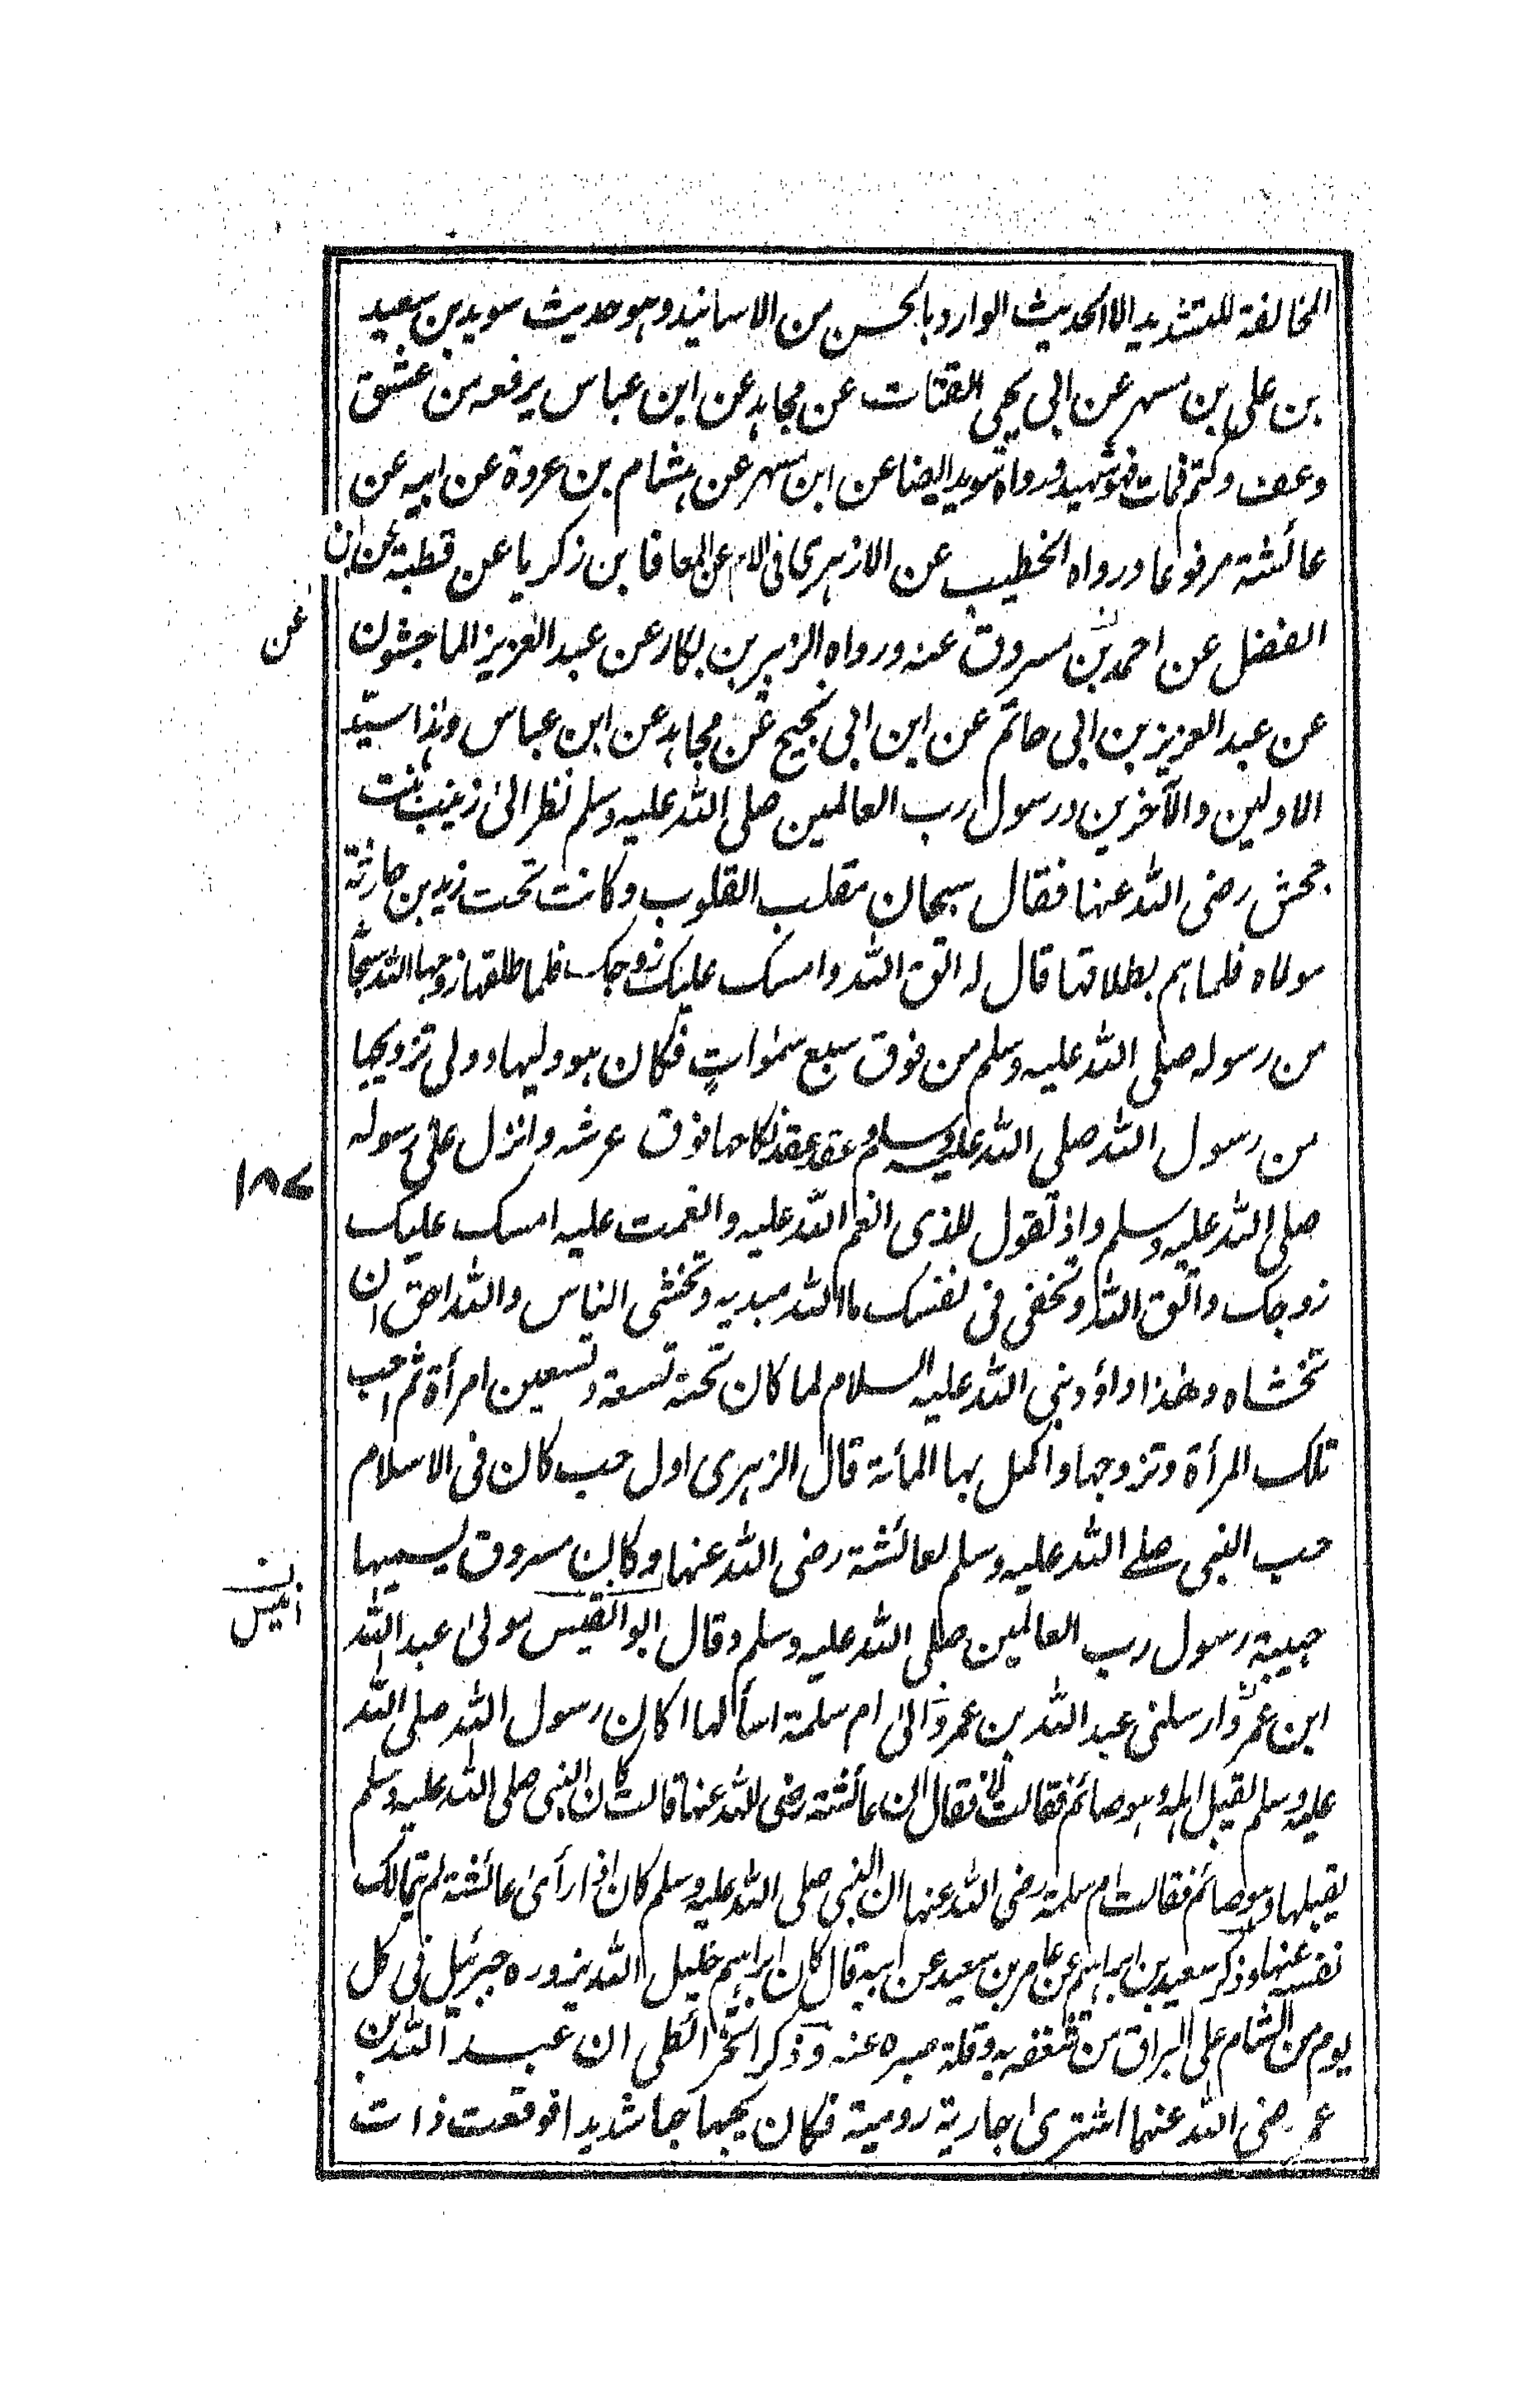 المخالفة للتشديد الا الحديث الوارد بالحسن من الاسانيد وهو حديث سويد بن سعيد
بن على بن مسهر عن ابى يحيى القتات عن مجاهد عن ابن عباس يرفعه من عشق
وعف وكتم فمات فهو شهيد ورواه سويد ايضا عن ابن مسهر عن هشام بن عروة عن ابيه عن
عائشة مرفوعا ورواه الخطيب عن الازهرى فى الام عن المعافا بن زكريا عن قطبة عن ابن
عن
الفضل عن احمد بن مسروق عنه ورواه الزبير بن بكار عن عبد العزيز الماجشون
عن عبد العزيز بن ابى حاتم عن ابن ابى نجيح عن مجاهد عن ابن عباس وهذا سيد
الاولين والآخرين ورسول رب العالمين صلى الله عليه وسلم نظر الى زينب بنت
جحش رضى الله عنها فقال سبحان مقلب القلوب وكانت تحت زيد بن حارثة
مولاه فلما هم بطلاقها قال له اتق الله وامسك عليك زوجك فلما طلقها زوجها الله سبحا
من رسوله صلى الله عليه وسلم من فوق سبع سمٰوات فكان هو وليها وولى تزويجها
من رسول الله صلى الله عليه وسلم وعقد عقد نكاحها فوق عرشه وانزل على رسوله
١٨٧
صلى الله عليه وسلم واذ تقول للذى انعم الله عليه وانعمت عليه امسك عليك
زوجك واتق الله وتخفى فى نفسك ما الله مبديه وتخشى الناس والله احق ان
تخشاه وهٰذا داؤد نبى الله عليه السلام لما كان تحته تسعة وتسعين امرأة ثم احب
تلك المرأة وتزوجها واكمل بها المأئة قال الزهرى اول حب كان فى الاسلام
حب النبى صلے الله عليه وسلم لعائشة رضى الله عنها وكان مسروق يسميها
حبيبة رسول رب العالمين صلى الله عليه وسلم وقال ابو القيس مولىٰ عبد الله
انيس
ابن عمرو ارسلنى عبد الله بن عمرو الىٰ ام سلمة اسألها اكان رسول الله صلى الله
عليه وسلم يقبل اهله وهو صائم فقالت لا فقال ان عائشة رضى الله عنها قالت كان النبى صلى الله عليه وسلم
يقبلها وهو صائم فقالت ام سلمة رضى الله عنها ان النبى صلى الله عليه وسلم كان اذا رأىٰ عائشة لم يتمالك
نفسه عنها وذكر سعيد بن ابراهيم عن عامر بن سعيد عن ابيه قال كان ابراهيم خليل الله يزوره جبرئيل فى كل
يوم من الشام على البراق من شغفه به وقلة صبره عنه وذكر الكلى ان عبد الله بن
عمر رضى الله عنهما اشترىٰ جارية رومية فكان يحبها حبا شديدا فوقعت ذات